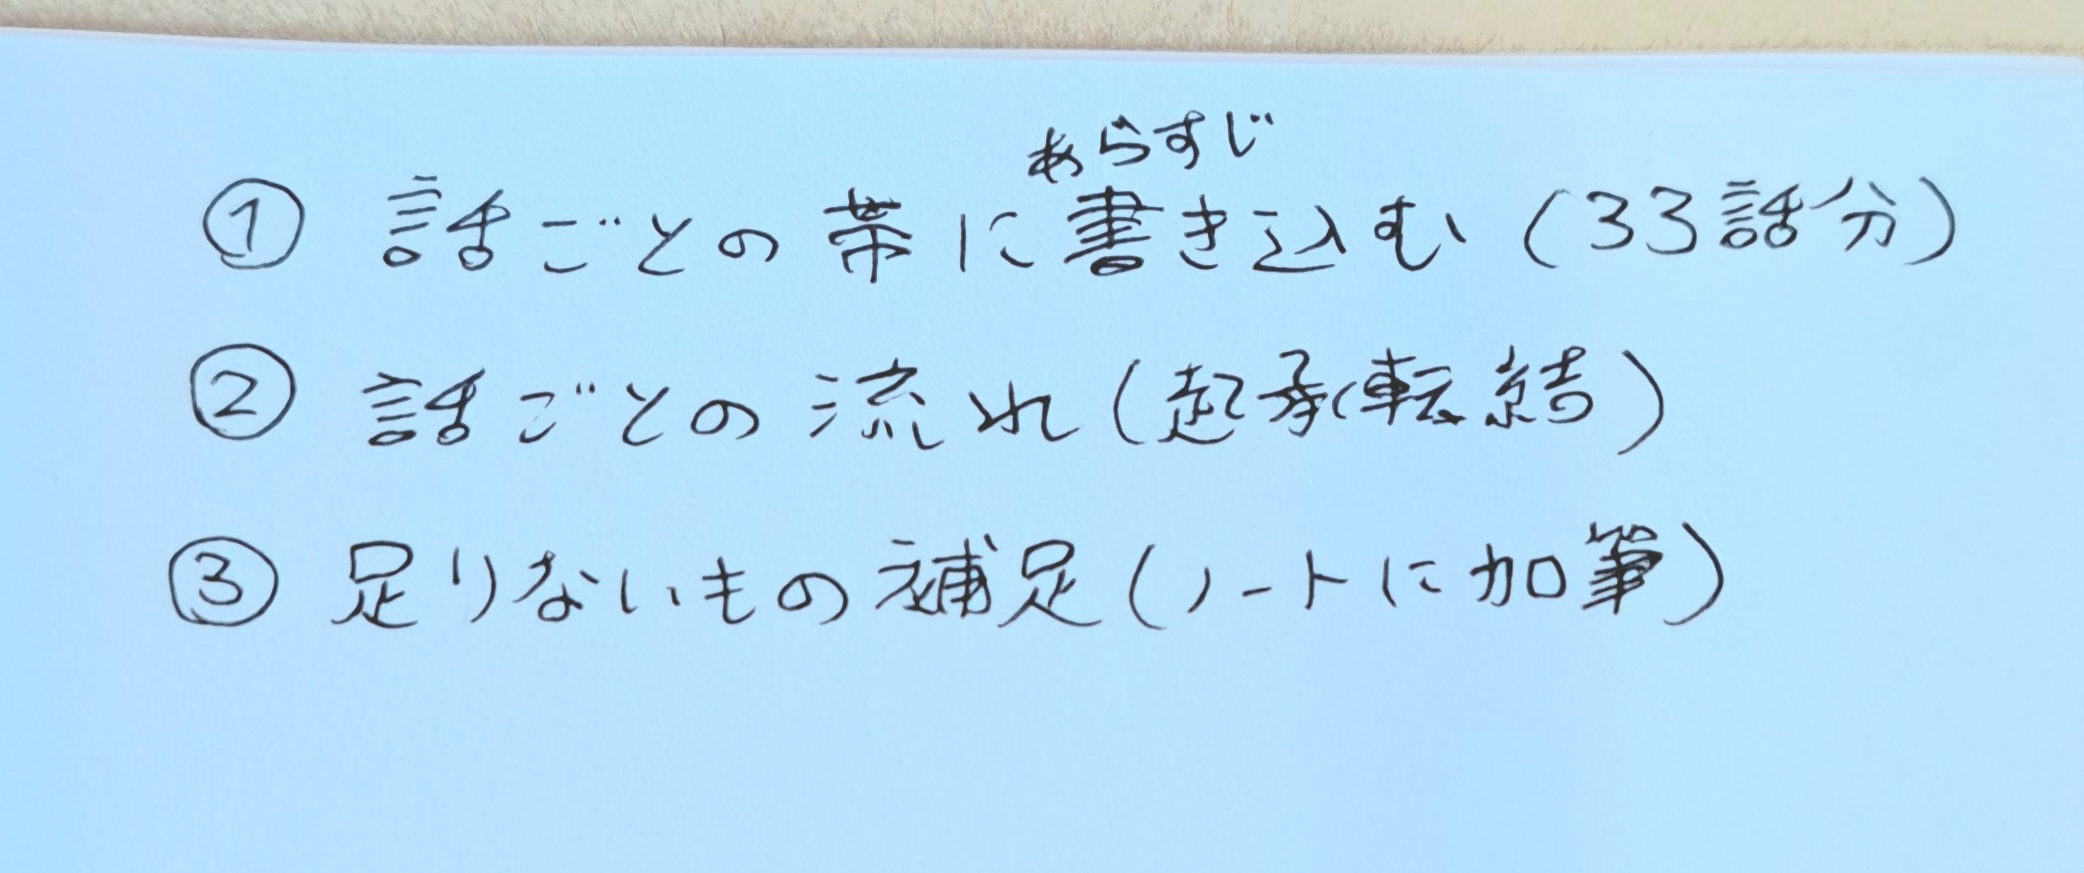 あらすじ
① 話ごとの帯に書き込む(33話分)
② 話ごとの流れ(起承転結)
③ 足りないもの補足(ノートに加筆)